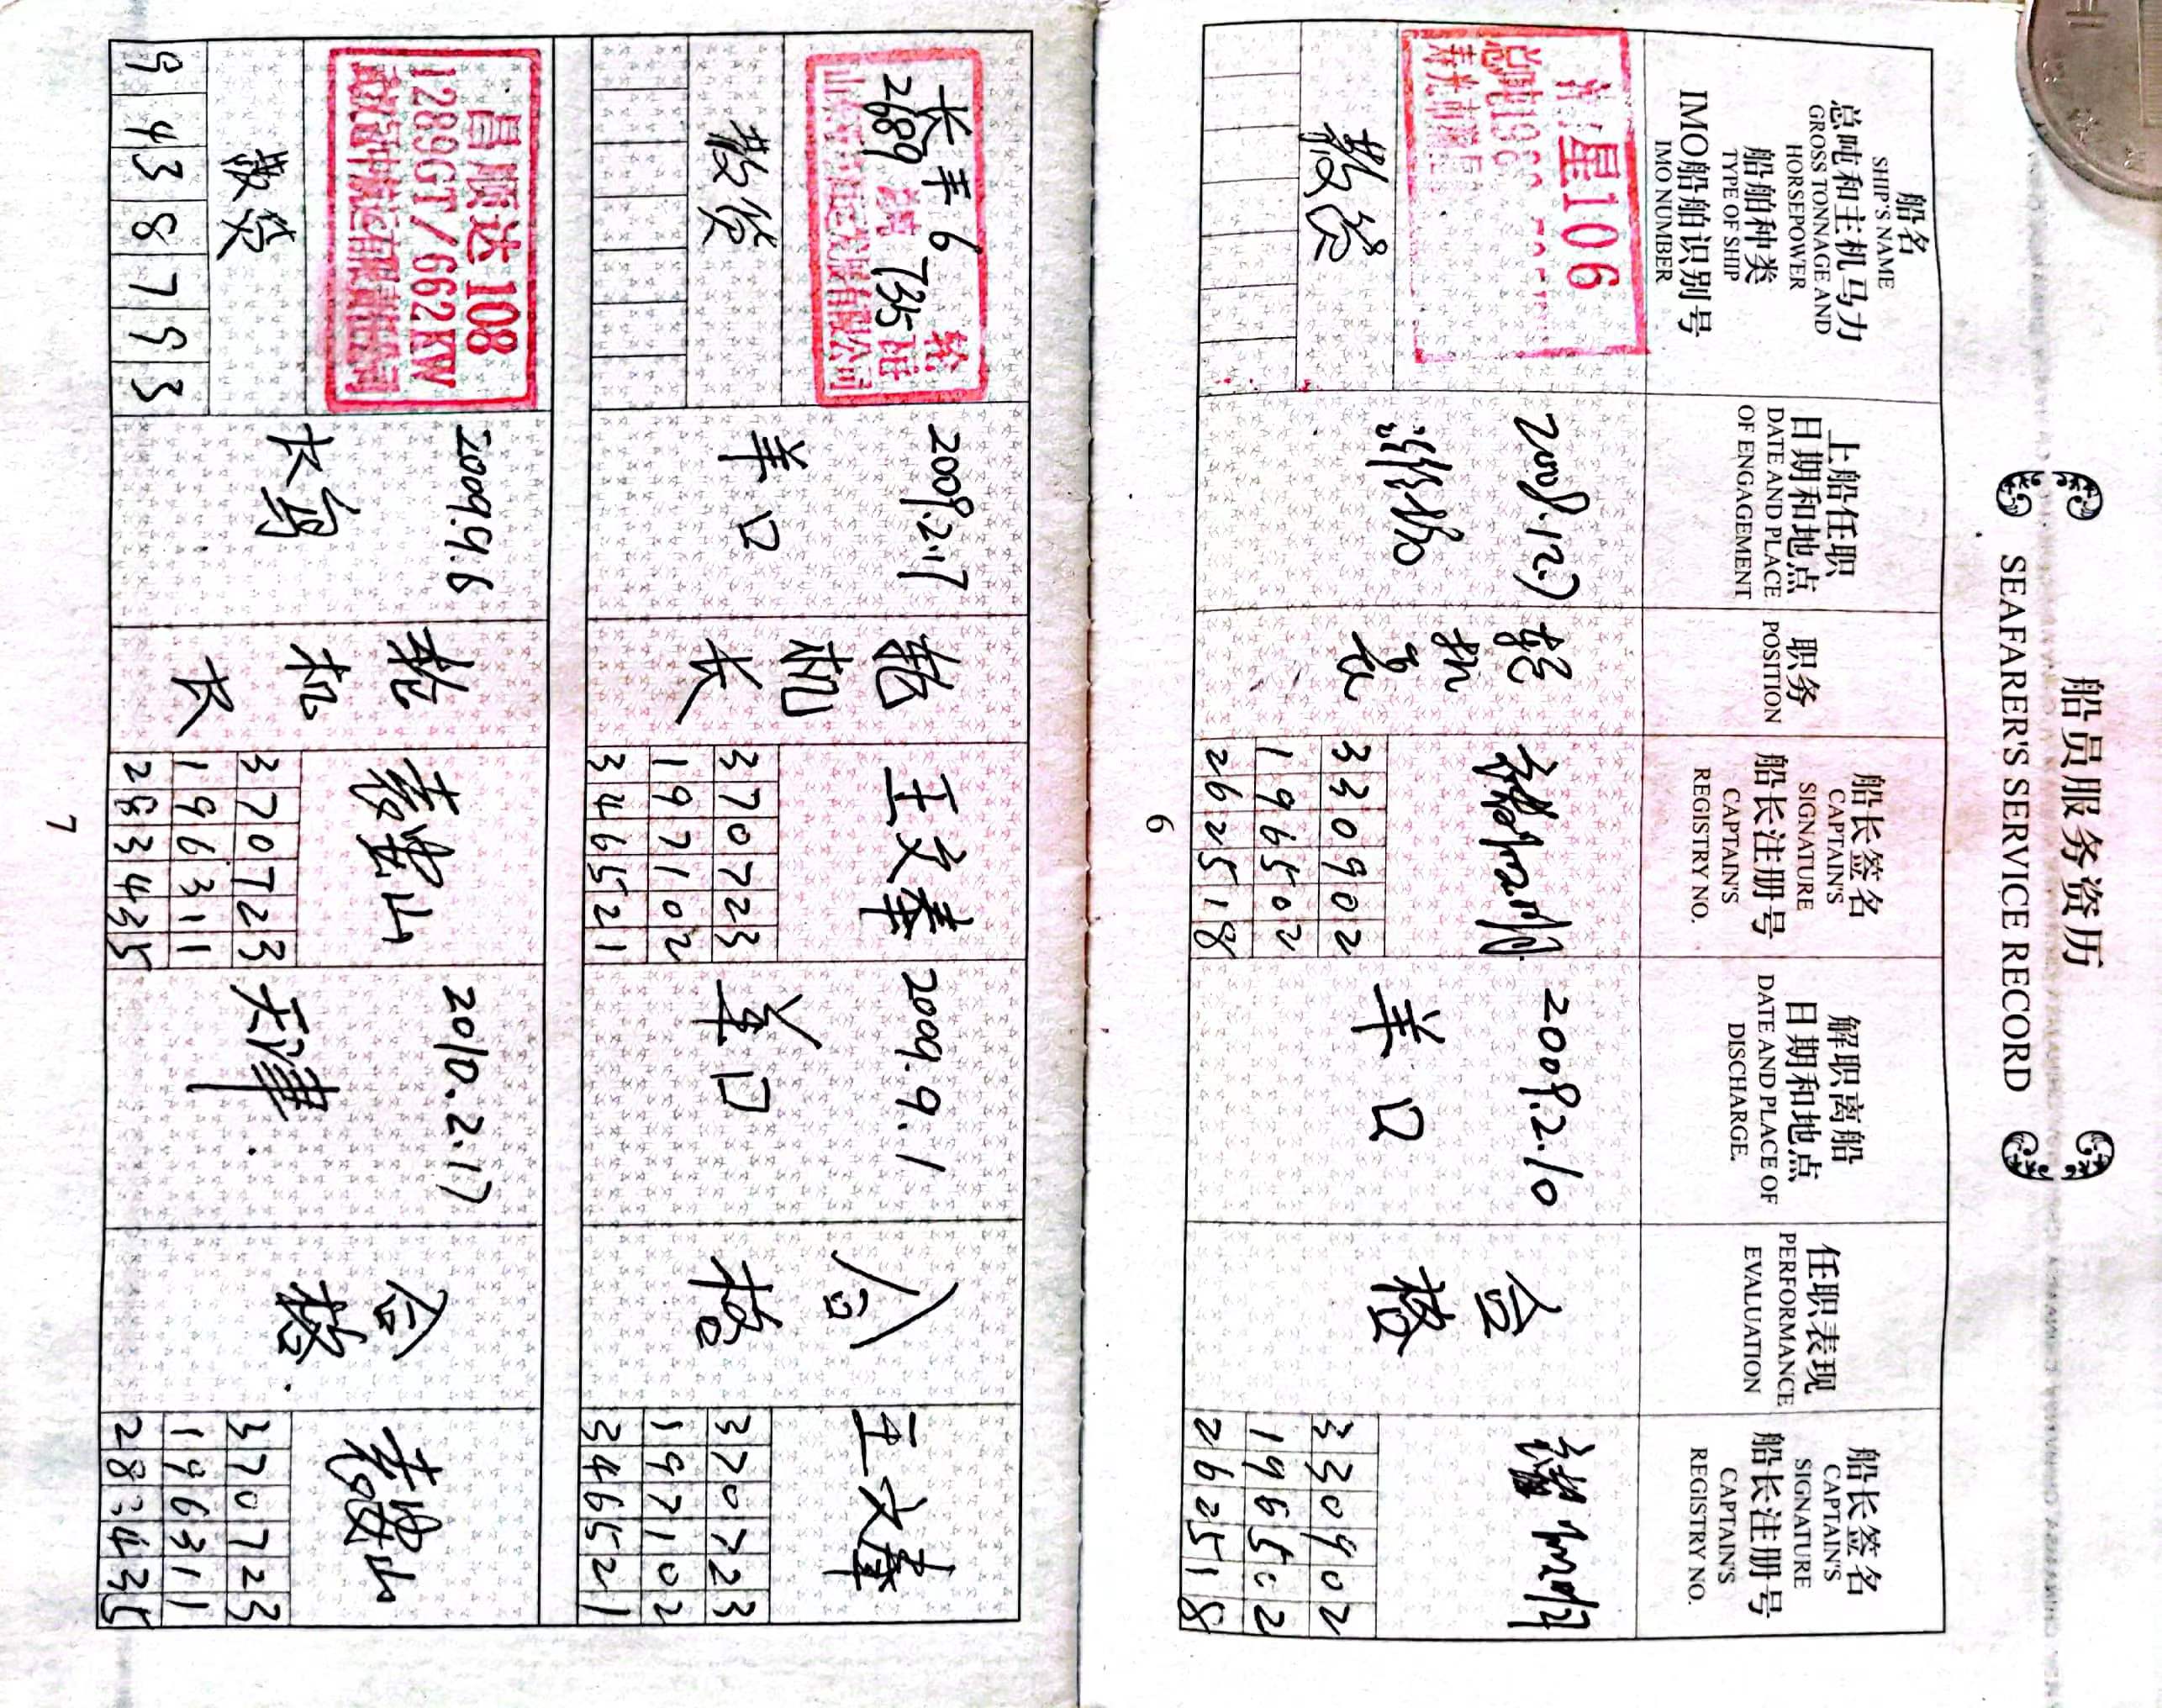 船员服务资历
SEAFARER'S SERVICE RECORD
船名
SHIP'S NAME
总吨和主机马力
GROSS TONNAGE AND
HORSEPOWER
船舶种类
TYPE OF SHIP
IMO船舶识别号
IMO NUMBER
上船任职
日期和地点
DATE AND PLACE
OF ENGAGEMENT
职务
POSITION
船长签名
CAPTAIN'S
SIGNATURE
船长注册号
CAPTAIN'S
REGISTRY NO.
解职离船
日期和地点
DATE AND PLACE OF
DISCHARGE.
任职表现
PERFORMANCE
EVALUATION
船长签名
CAPTAIN'S
SIGNATURE
船长注册号
CAPTAIN'S
REGISTRY NO.
星106
散货
2008.12.7
330902
196502
262518
2009.2.10
羊口
合
格
330902
196502
262518
6
长丰6 轮
2689 735
散货
2009.2.17
羊口
轮
机
长
王文春
370723
197102
346521
2009.9.1
羊口
合
格
王文春
370723
197102
346521
昌顺达108
1289GT/662KW
散货
9438793
2009.9.6
大岛
轮
机
长
370723
196311
283435
2010.2.17
天津
合
格
370723
196311
283435
7